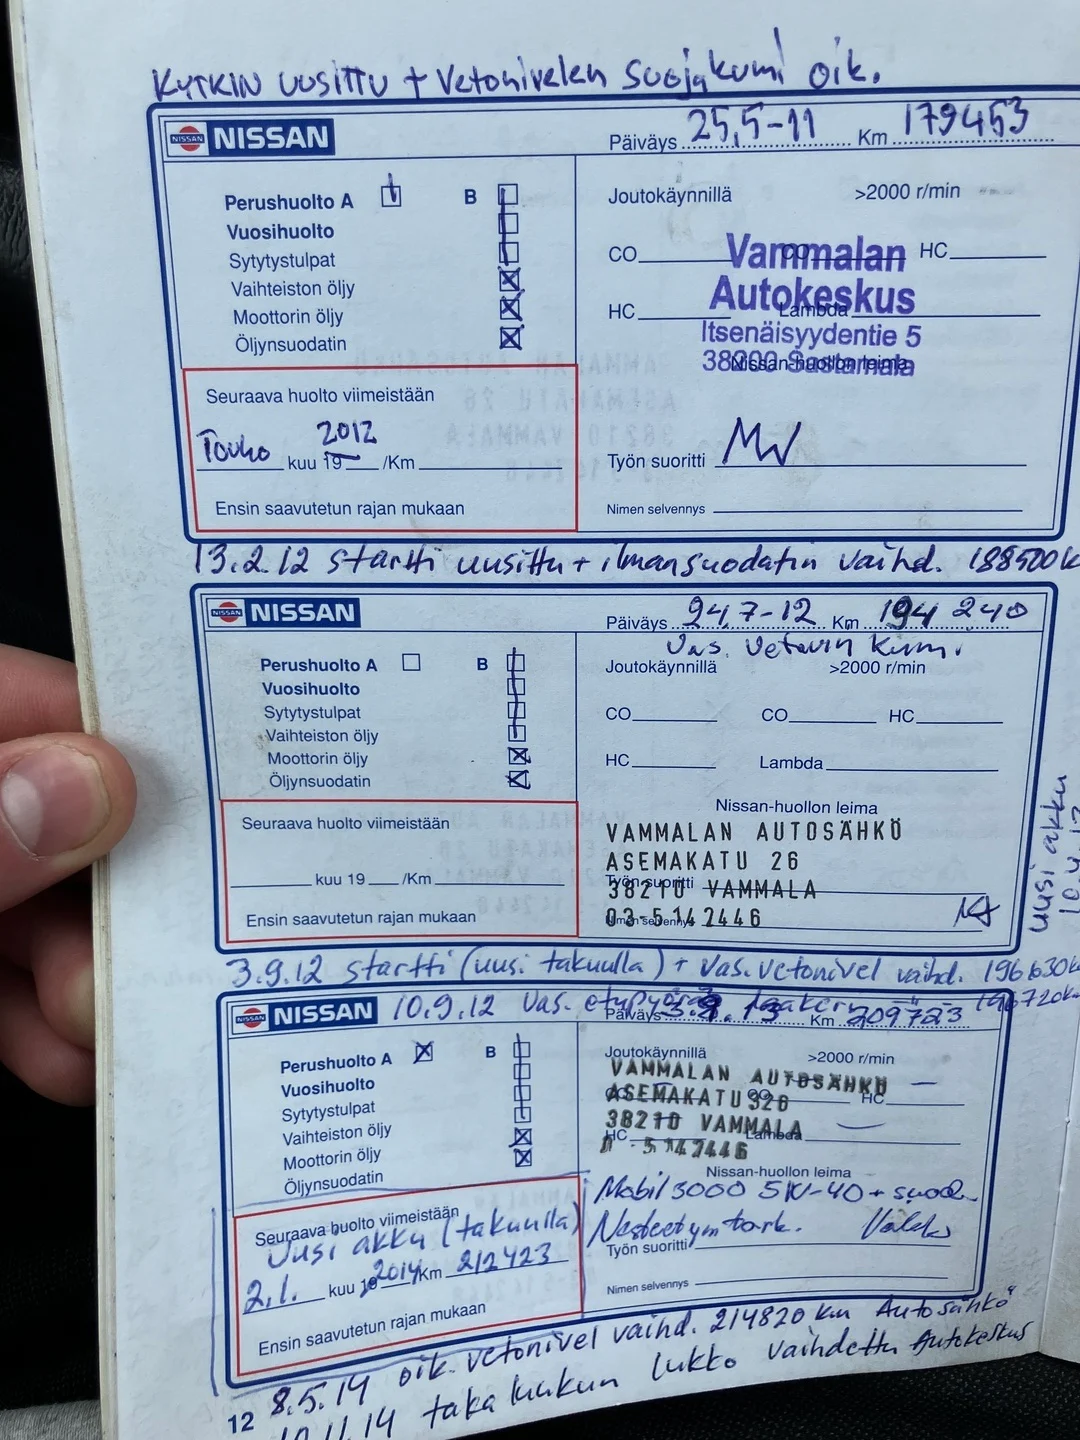 KYTKIN UUSITTU + Vetonivelen suojakumi oik.
NISSAN NISSAN
Päiväys 25.5-11 Km 179453
Perushuolto A B
Vuosihuolto
Sytytystulpat
Vaihteiston öljy
Moottorin öljy
Öljynsuodatin
Joutokäynnillä >2000 r/min
CO CO HC
HC Lambda
Vammalan
Autokeskus
Itsenäisyydentie 5
38200 Sastamala
Nissan-huollon leima
Seuraava huolto viimeistään
Touko kuu 19 2012 /Km
Ensin saavutetun rajan mukaan
Työn suoritti
Nimen selvennys
13.2.12 startti uusittu + ilmansuodatin vaihd. 188500k
NISSAN NISSAN
Päiväys 24.7-12 Km 194 240
Vas. Vetäviv kumi
Perushuolto A B
Vuosihuolto
Sytytystulpat
Vaihteiston öljy
Moottorin öljy
Öljynsuodatin
Joutokäynnillä >2000 r/min
CO CO HC
HC Lambda
Nissan-huollon leima
VAMMALAN AUTOSÄHKÖ
ASEMAKATU 26
38210 VAMMALA
03-5142446
Työn suoritti
Nimen selvennys
Seuraava huolto viimeistään
kuu 19 /Km
Ensin saavutetun rajan mukaan
uusi akku
3.9.12 startti (uusi takuulla) + vas. vetonivel vaihd. 196630k
196720km
NISSAN NISSAN 10.9.12 vas. etupyörän laakeri
Päiväys 3.9.13 Km 209723
Perushuolto A B
Vuosihuolto
Sytytystulpat
Vaihteiston öljy
Moottorin öljy
Öljynsuodatin
Joutokäynnillä >2000 r/min
CO CO HC
HC Lambda
VAMMALAN AUTOSÄHKÖ
ASEMAKATU 26
38210 VAMMALA
5142446
Nissan-huollon leima
Mobil 3000 5W-40 + suod.
Työn suoritti
Nimen selvennys
Seuraava huolto viimeistään
Uusi akku (takuulla)
2.1. kuu 19 2014 /Km 212423
Ensin saavutetun rajan mukaan
8.5.14 oik. vetonivel vaihd. 214820 km Autosähkö
11.14 takaluukun lukko vaihdettu Autokeskus
12